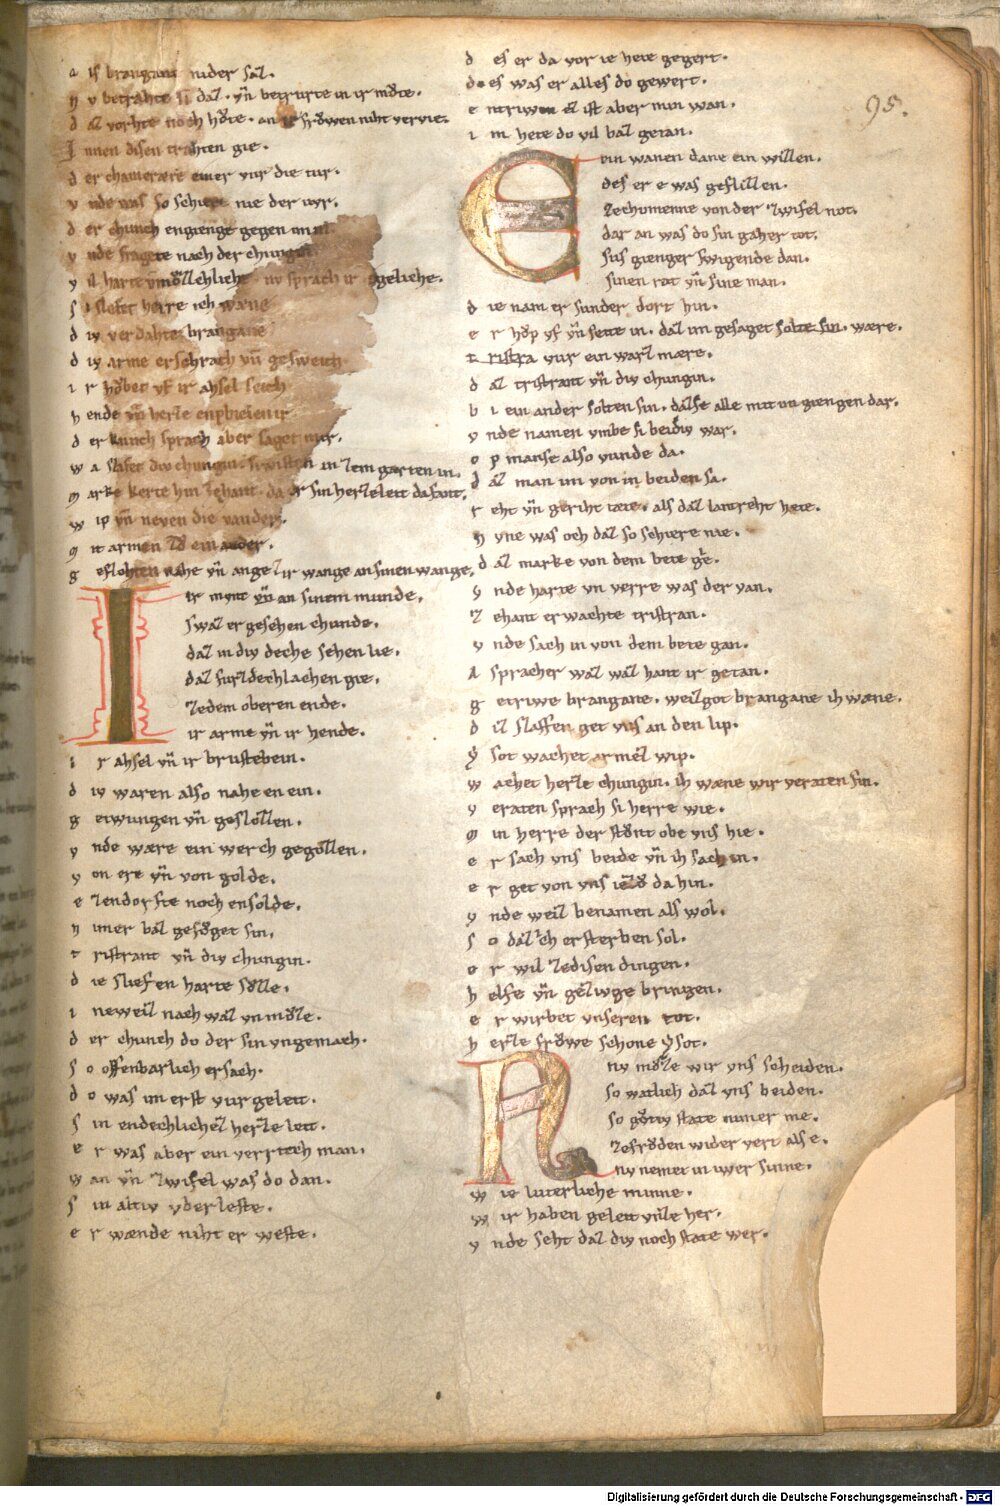 a is brangane nider saz.
n v betrahte si daz. vn̄ betrurte in ir mo᷎te.
d az vorhte noch hv᷎te. an ir frowen niht vervie.
I nnen disen trahten gie.
d er chamerære einer vur die tur.
v nde was so schiere nie der vur.
d er chunch engienge gegen im in
v nde fragete nach der chungin
v il harte vmvͦzlichliche
s i slafet herre ich wæne
d iv verdahte brangane
d iv arme erschrach vn̄ gesweich
i r hoͮbet vf ir ahsel seich
h ende vn̄ herze enphielen ir
d er kunch sprach aber saget mir.
w a slafet div chungin. frawe in zem garten in.
m arke kerte hin zehant. da er sin herzeleit da vant.
w ip vn̄ neven die vander.
m it armen zv᷎ ein ander.
g eflohten nahe vn̄ ange ir wange an sinen wange.
ir mvnt vn̄ an sinem munde.
swaz er gesehen chunde.
daz in div deche sehen lie.
daz fur zdechlachen gie.
zedem oberen ende.
ir arme vn̄ ir hende.
i r ahsel vn̄ ir brustebein.
d iv waren also nahe en ein.
g etwungen vn̄ geslozzen.
v nde wære ein werch gegozzen.
v on ere vn̄ von golde.
e zendorfte noch ensolde.
n imer baz gefoͮget sin.
t ristrant vn̄ div chungin.
d ie sliefen harte sv᷎zze.
i neweiz nach waz vnmv᷎ze.
d er chunch do der sin vngemach.
s o offenbarlich ersach.
d o was im erst vur geleit.
s in endechlichez herze leit.
e r was aber ein verrtech man.
w an vn̄ zwifel was do dan.
s in altiv vberleste.
e r wænde niht er weste.
d es er da vor ie hete gegert.
d es was er alles do gewert.
e ntriwen ez ist aber min wan.
i m hete do vil baz getan.
Ein wanen dane ein willen.
des er e was geflizzen.
zechomenne von der zwifel not.
dar an was do sin gaher tot.
sus gienger swigende dan.
sinen rat vn̄ sine man.
d ie nam er sunder dort hin.
e r hv᷎p vf vn̄ seite in. daz im gesaget solte sin. wære.
t ristra vur ein warz mære.
d az tristrant vn̄ div chungin.
b i ein ander solten sin. daz se alle mit im giengen dar.
v nde namen vmbe si beidiv war.
o p manse also vunde da.
d az man im von in beiden sa.
r eht vn̄ geriht tæte. als daz lantreht hete.
n vne was och daz so schiere nie.
d az marke von dem bete gie.
v nde harte vn verre was der van.
z ehant erwachte tristran.
v nde sach in von dem bete gan.
a spracher waz waz hant ir getan.
g etriwe brangane. weiz got brangane ih wæne.
d iz slaffen get vns an den lip.
y sot wachet armez wip.
w achet herze chungin. ih wæne wir veraten sin.
v eraten sprach si herre wie.
m in herre der stv᷎nt obe vns hie.
e r sach vns beide vn̄ ih sach in.
e r get von vns iezv᷎ da hin.
v nde weiz benamen als wol.
s o daz ich ersterben sol.
e r wil zedisen dingen.
h elfe vn̄ gezivge bringen.
e r wirbet vnseren tot.
h erze froͮwe schone ysot.
Nv mv᷎ze wir vns scheiden.
so wætlich daz vns beiden.
so gv᷎tiv state nimer me.
zefroͮden wider vert als e.
nv nemet in iwer sinne.
w ie luterliche minne.
w ir haben geleit vnze her.
v nde seht daz div noch state wer.
95.
Digitalisierung gefördert durch die Deutsche Forschungsgemeinschaft - DFG